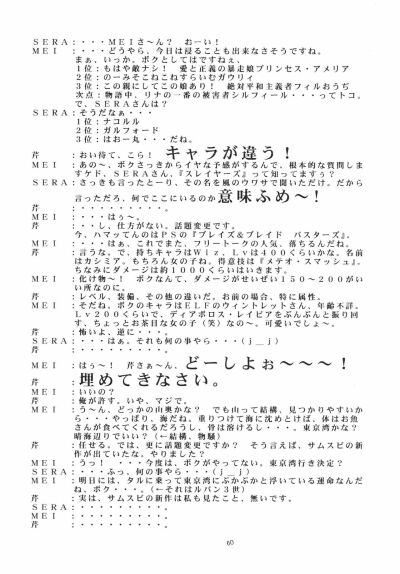 SERA:・・・MEIさ～ん? おーい!
MEI :・・・どうやら、今日は浸ることも出来なさそうですね。
まぁ、いっか、ボクとしてはですねぇ、
1位:もはや敵ナシ! 愛と正義の暴走娘プリンセス・アメリア
2位:のーみそこねこねすらいむガウリィ
3位:この親にしてこの娘あり! 絶対平和主義者フィルおうぢ
次点:物語中、リナの一番の被害者シルフィール・・・ってトコ。
で、SERAさんは?
SERA:そうだなぁ・・・
1位:ナコルル
2位:ガルフォード
3位:はおー丸・・・だね。
芹 :おい待て、こら! キャラが違う!
MEI :あの～、ボクさっきからイヤな予感がするんで、根本的な質問しま
すケド、SERAさん、『スレイヤーズ』って知ってますぅ?
SERA:さっきも言ったとーり、その名を風のウワサで聞いただけ。だから
言っただろ、何でここにいるのか意味ふめ～!
芹 :・・・・・・・・・。
MEI :・・・はぅ～。
芹 :・・・し、仕方がない。話題変更です。
今、ハマッてんのはPSの『ブレイズ&ブレイド バスターズ』。
MEI :・・・はぁ、これでまた、フリートークの人気、落ちるんだね。
芹 :言うな。で、持ちキャラはWiz、Lvは400くらいかな。名前
はカシミア。もちろん女の子ね。得意技は『メテオ・スマッシュ』。
ちなみにダメージは約1000くらいはいきます。
MEI :化け物～! ボクなんて、ダメージがせいぜい150～200がい
い所なのに。
芹 :レベル、装備、その他の違いだ。お前の場合、特に属性。
MEI :そだね。ボクのキャラはELFのウィントレットさん、年齢不詳。
Lv200くらいで、ディアボロス・レイピアをぶんぶんと振り回
す、ちょっとお茶目な女の子(笑)なの～。可愛いでしょ～。
芹 :怖いよ、逆に・・・。
SERA:・・・はぁ。それも何の事やら・・・(j_j)
芹 :・・・・・・・・・。
MEI :はぅ～! 芹さぁ～ん、どーしよぉ～～～!
芹 :埋めてきなさい。
MEI :いいの?
芹 :俺が許す。いや、マジで。
MEI :う～ん、どっかの山奥かな? でも山って結構、見つかりやすいか
ら・・・やっぱり、海だね。重りつけて海に沈めとけば、体はお魚
さんが食べてくれるだろうし、骨は溶けるし・・・。東京湾かな?
晴海辺りでいい?(←結構、物騒)
芹 :任せる。では、更に話題変更ですか? そう言えば、サムスピの新
作が出ていたな。やりました?
MEI :うっ! ・・・今度は、ボクがやってない。東京湾行き決定?
SERA:・・・ふっ、何の事やら・・・(j_j)
MEI :明日には、タルに乗って東京湾にぷかぷかと浮いている運命なんだ
ね、ボク・・・。(←それはルパン3世)
芹 :実は、サムスピの新作は私も見たこと、無いです。
SERA:・・・・・・・・・。
MEI :・・・・・・・・・。
芹 :・・・・・・・・・。
60